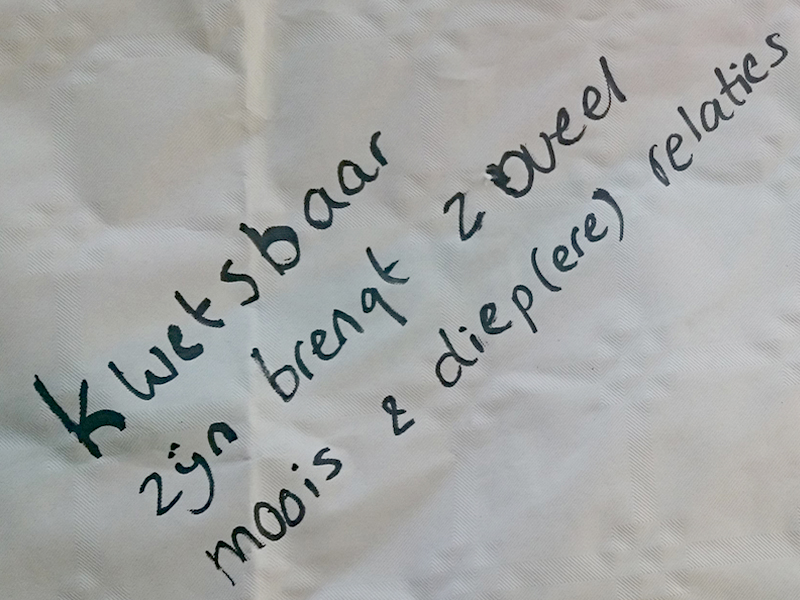 Kwetsbaar
zijn brengt zoveel
moois & diep(ere) relaties